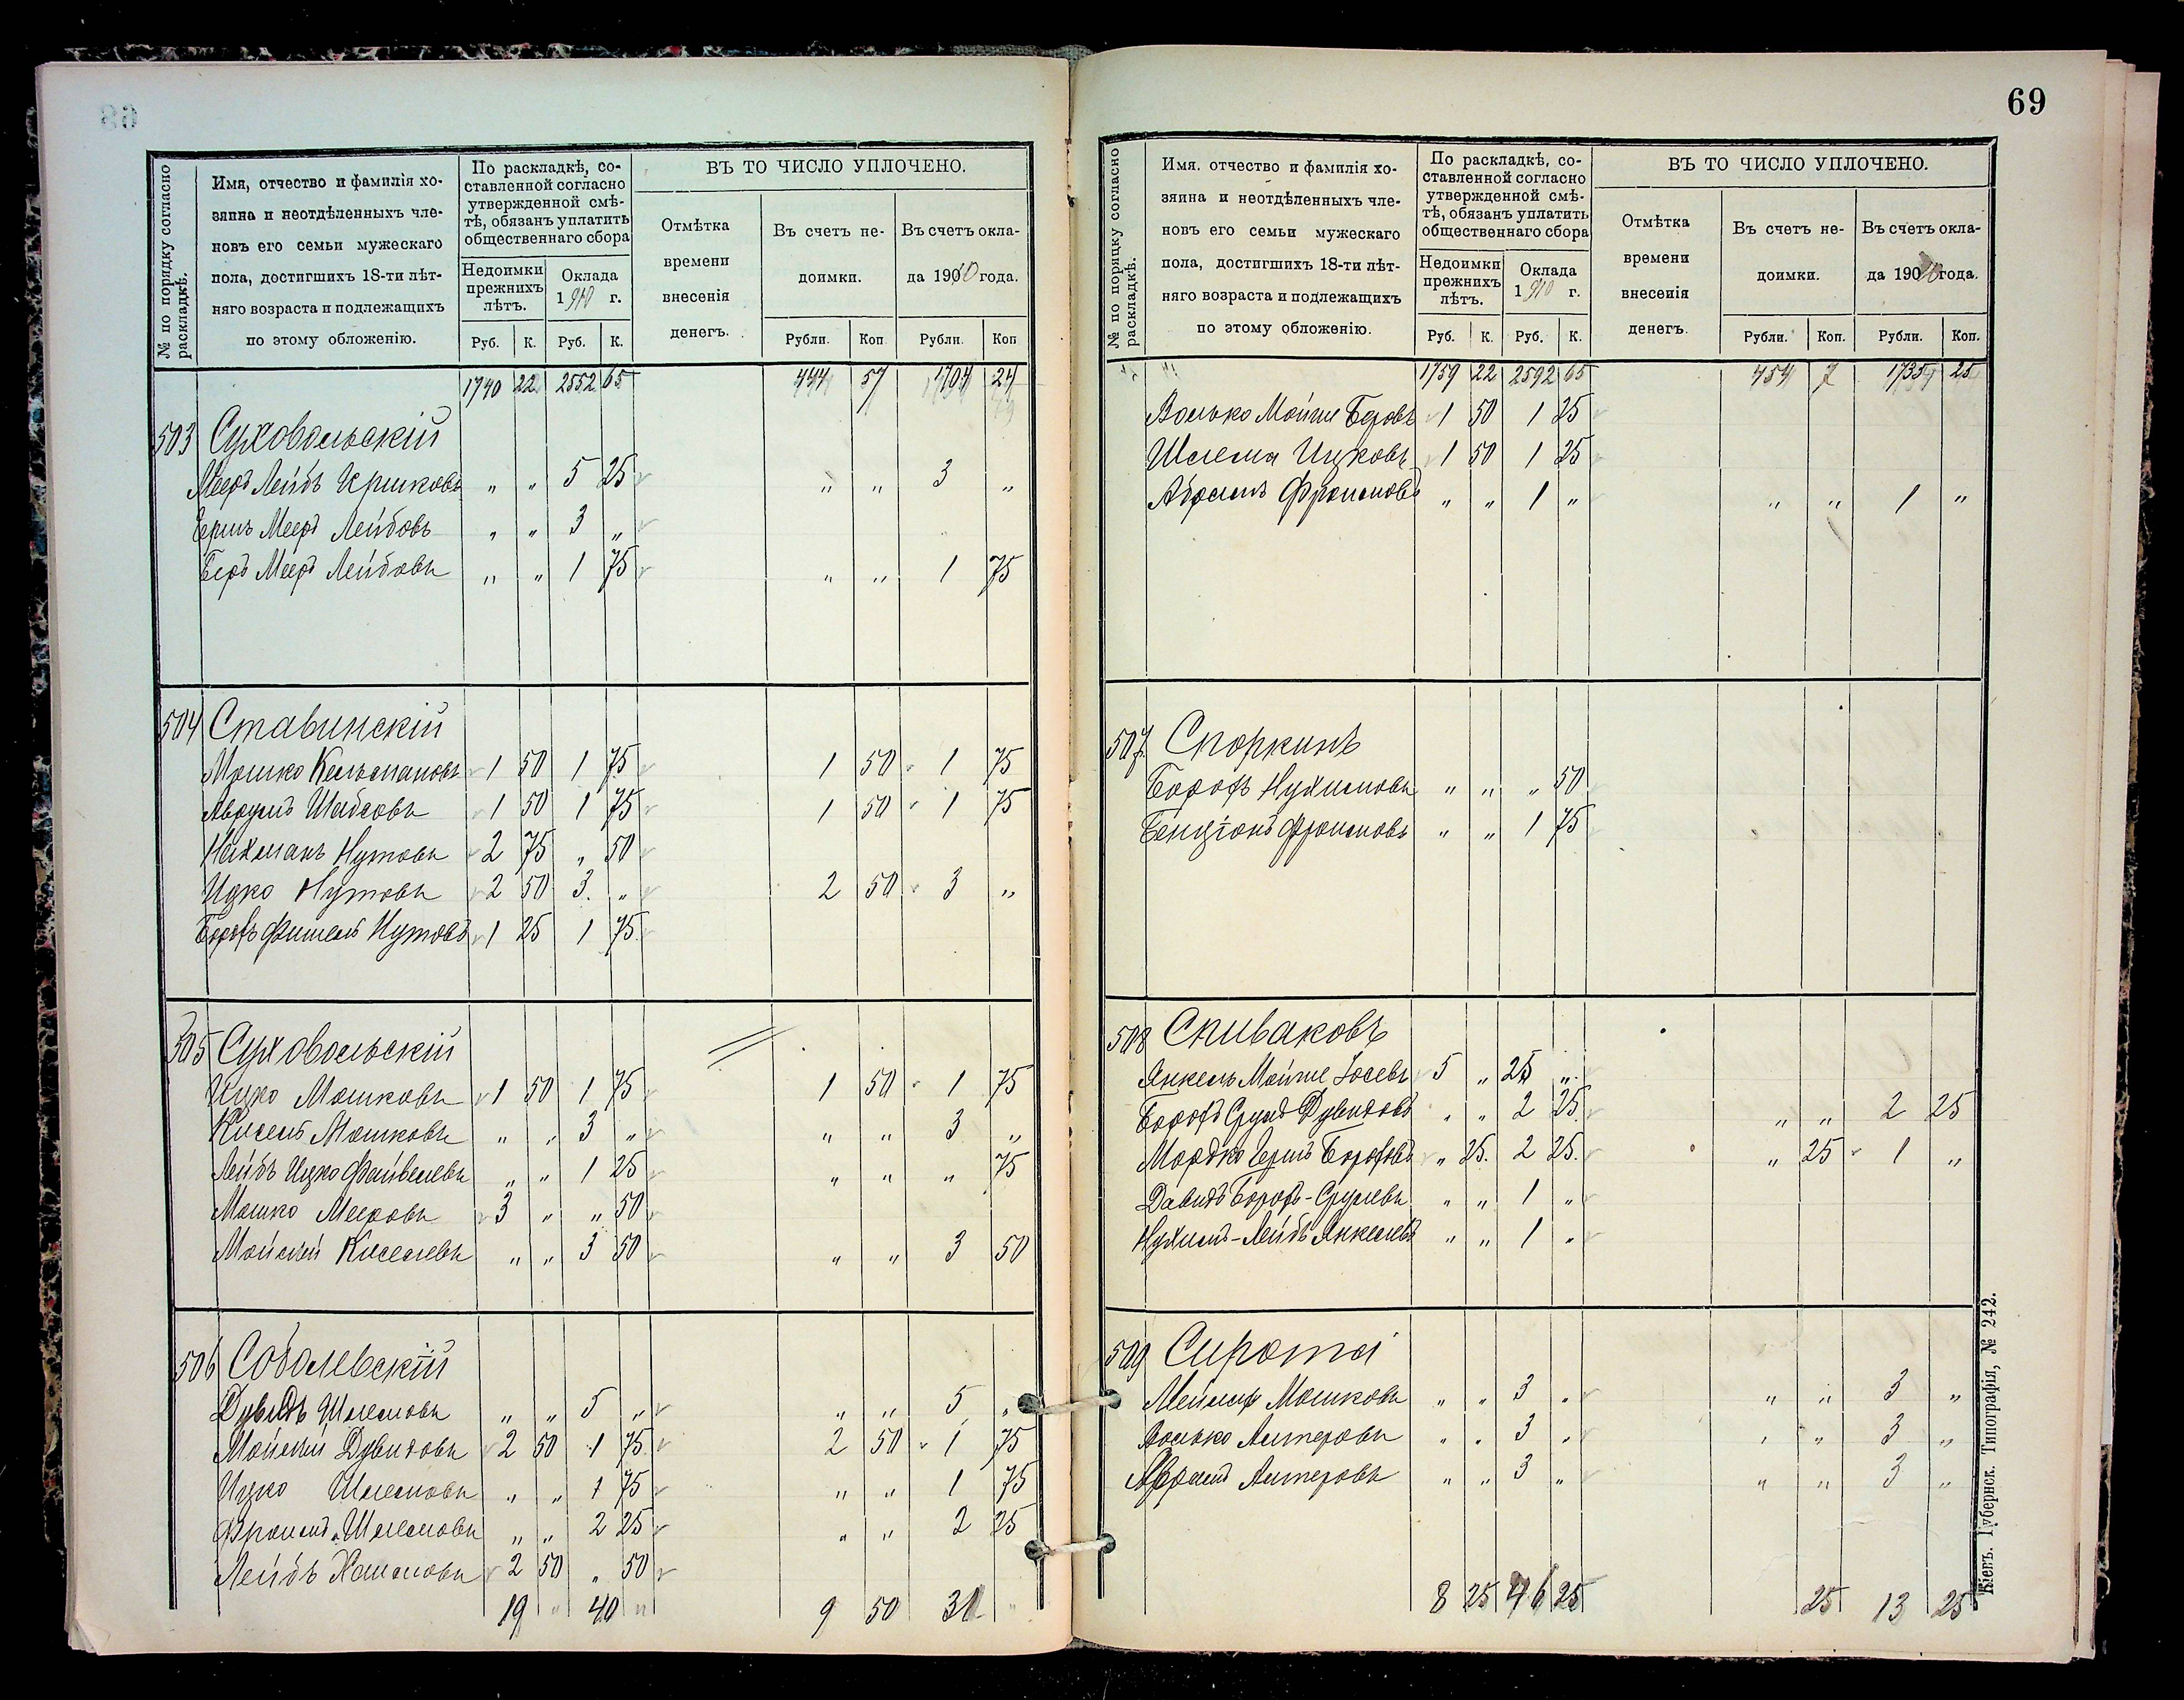 68
№ по порядку согласно раскладкѣ.
Имя, отчество и фамилія хо-
зяина и неотдѣленныхъ чле-
новъ его семьи мужескаго
пола, достигшихъ 18-ти лѣт-
няго возраста и подлежащихъ
по этому обложенію.
По раскладкѣ, со-
ставленной согласно
утвержденной смѣ-
тѣ, обязанъ уплатить
общественнаго сбора
Недоимки прежнихъ лѣтъ.
Оклада 1910 г.
Руб. К. Руб. К.
ВЪ ТО ЧИСЛО УПЛОЧЕНО.
Отмѣтка
времени
внесенія
денегъ.
Въ счетъ не-
доимки.
Въ счетъ окла-
да 1910 года.
Рубли. Коп Рубли. Коп
1740 22 2552 65 444 57 1704 24
503 Суховольскій
Мееръ Лейбъ Ершковъ " " 5 25 " " 3 "
Гершъ Мееръ Лейбовъ " " 3 "
Беръ Мееръ Лейбовъ " " 1 75 " " 1 75
504 Ставинскій
Мошко Кельмановъ 1 50 1 75 1 50 1 75
Аврумъ Шабсовъ 1 50 1 75 1 50 1 75
Нахманъ Нутовъ 2 75 " 50
Ицко Нутовъ 2 50 3 " 2 50 3 "
Борохъ Фишель Нутовъ 1 25 1 75
505 Суховольскій
Ицко Мошковъ 1 50 1 75 1 50 1 75
Кисель Мошковъ " " 3 " " " 3 "
Лейбъ Ицко Файвелевъ " " 1 25 " " " 75
Мошко Мееровъ 3 " " 50
Мойсей Киселевъ " " 3 50 " " 3 50
506 Соболевскій
Дувидъ Шлемовъ " " 5 " " " 5 "
Мойсей Дувидовъ 2 50 1 75 2 50 1 75
Ицко Шлемовъ " " 1 75 " " 1 75
Фроимъ Шлемовъ " " 2 25 " " 2 25
Лейбъ Хаимовъ 2 50 " 50
19 " 40 " 9 50 31 "
69
№ по порядку согласно раскладкѣ.
Имя, отчество и фамилія хо-
зяина и неотдѣленныхъ чле-
новъ его семьи мужескаго
пола, достигшихъ 18-ти лѣт-
няго возраста и подлежащихъ
по этому обложенію.
По раскладкѣ, со-
ставленной согласно
утвержденной смѣ-
тѣ, обязанъ уплатить
общественнаго сбора
Недоимки прежнихъ лѣтъ.
Оклада 1910 г.
Руб. К. Руб. К.
ВЪ ТО ЧИСЛО УПЛОЧЕНО.
Отмѣтка
времени
внесенія
денегъ.
Въ счетъ не-
доимки.
Въ счетъ окла-
да 1910 года.
Рубли. Коп. Рубли. Коп.
1759 22 2592 65 454 7 1735 25
Волько Мойше Беровъ 1 50 1 25
Шлема Ицковъ 1 50 1 25
Абрамъ Фроимовъ " " 1 " " " 1 "
507 Споркинъ
Борохъ Нухимовъ " " " 50
Бенціонъ Фроимовъ " " 1 75
508 Спиваковъ
Янкель Мойше Іосевъ 5 " 25 "
Борохъ Сруль Дувидовъ " " 2 25 " " 2 25
Мордко Гершъ Бороховъ " 25 2 25 " 25 1 "
Давидъ Борохъ-Срулевъ " " 1 "
Нухимъ-Лейбъ Янкелевъ " " 1 "
509 Сирота
Мейлехъ Мошковъ " " 3 " " " 3 "
Волько Алтеровъ " " 3 " " " 3 "
Абрамъ Алтеровъ " " 3 " " " 3 "
8 25 46 25 25 13 25
Кіевъ. Губернск. Типографія, № 242.